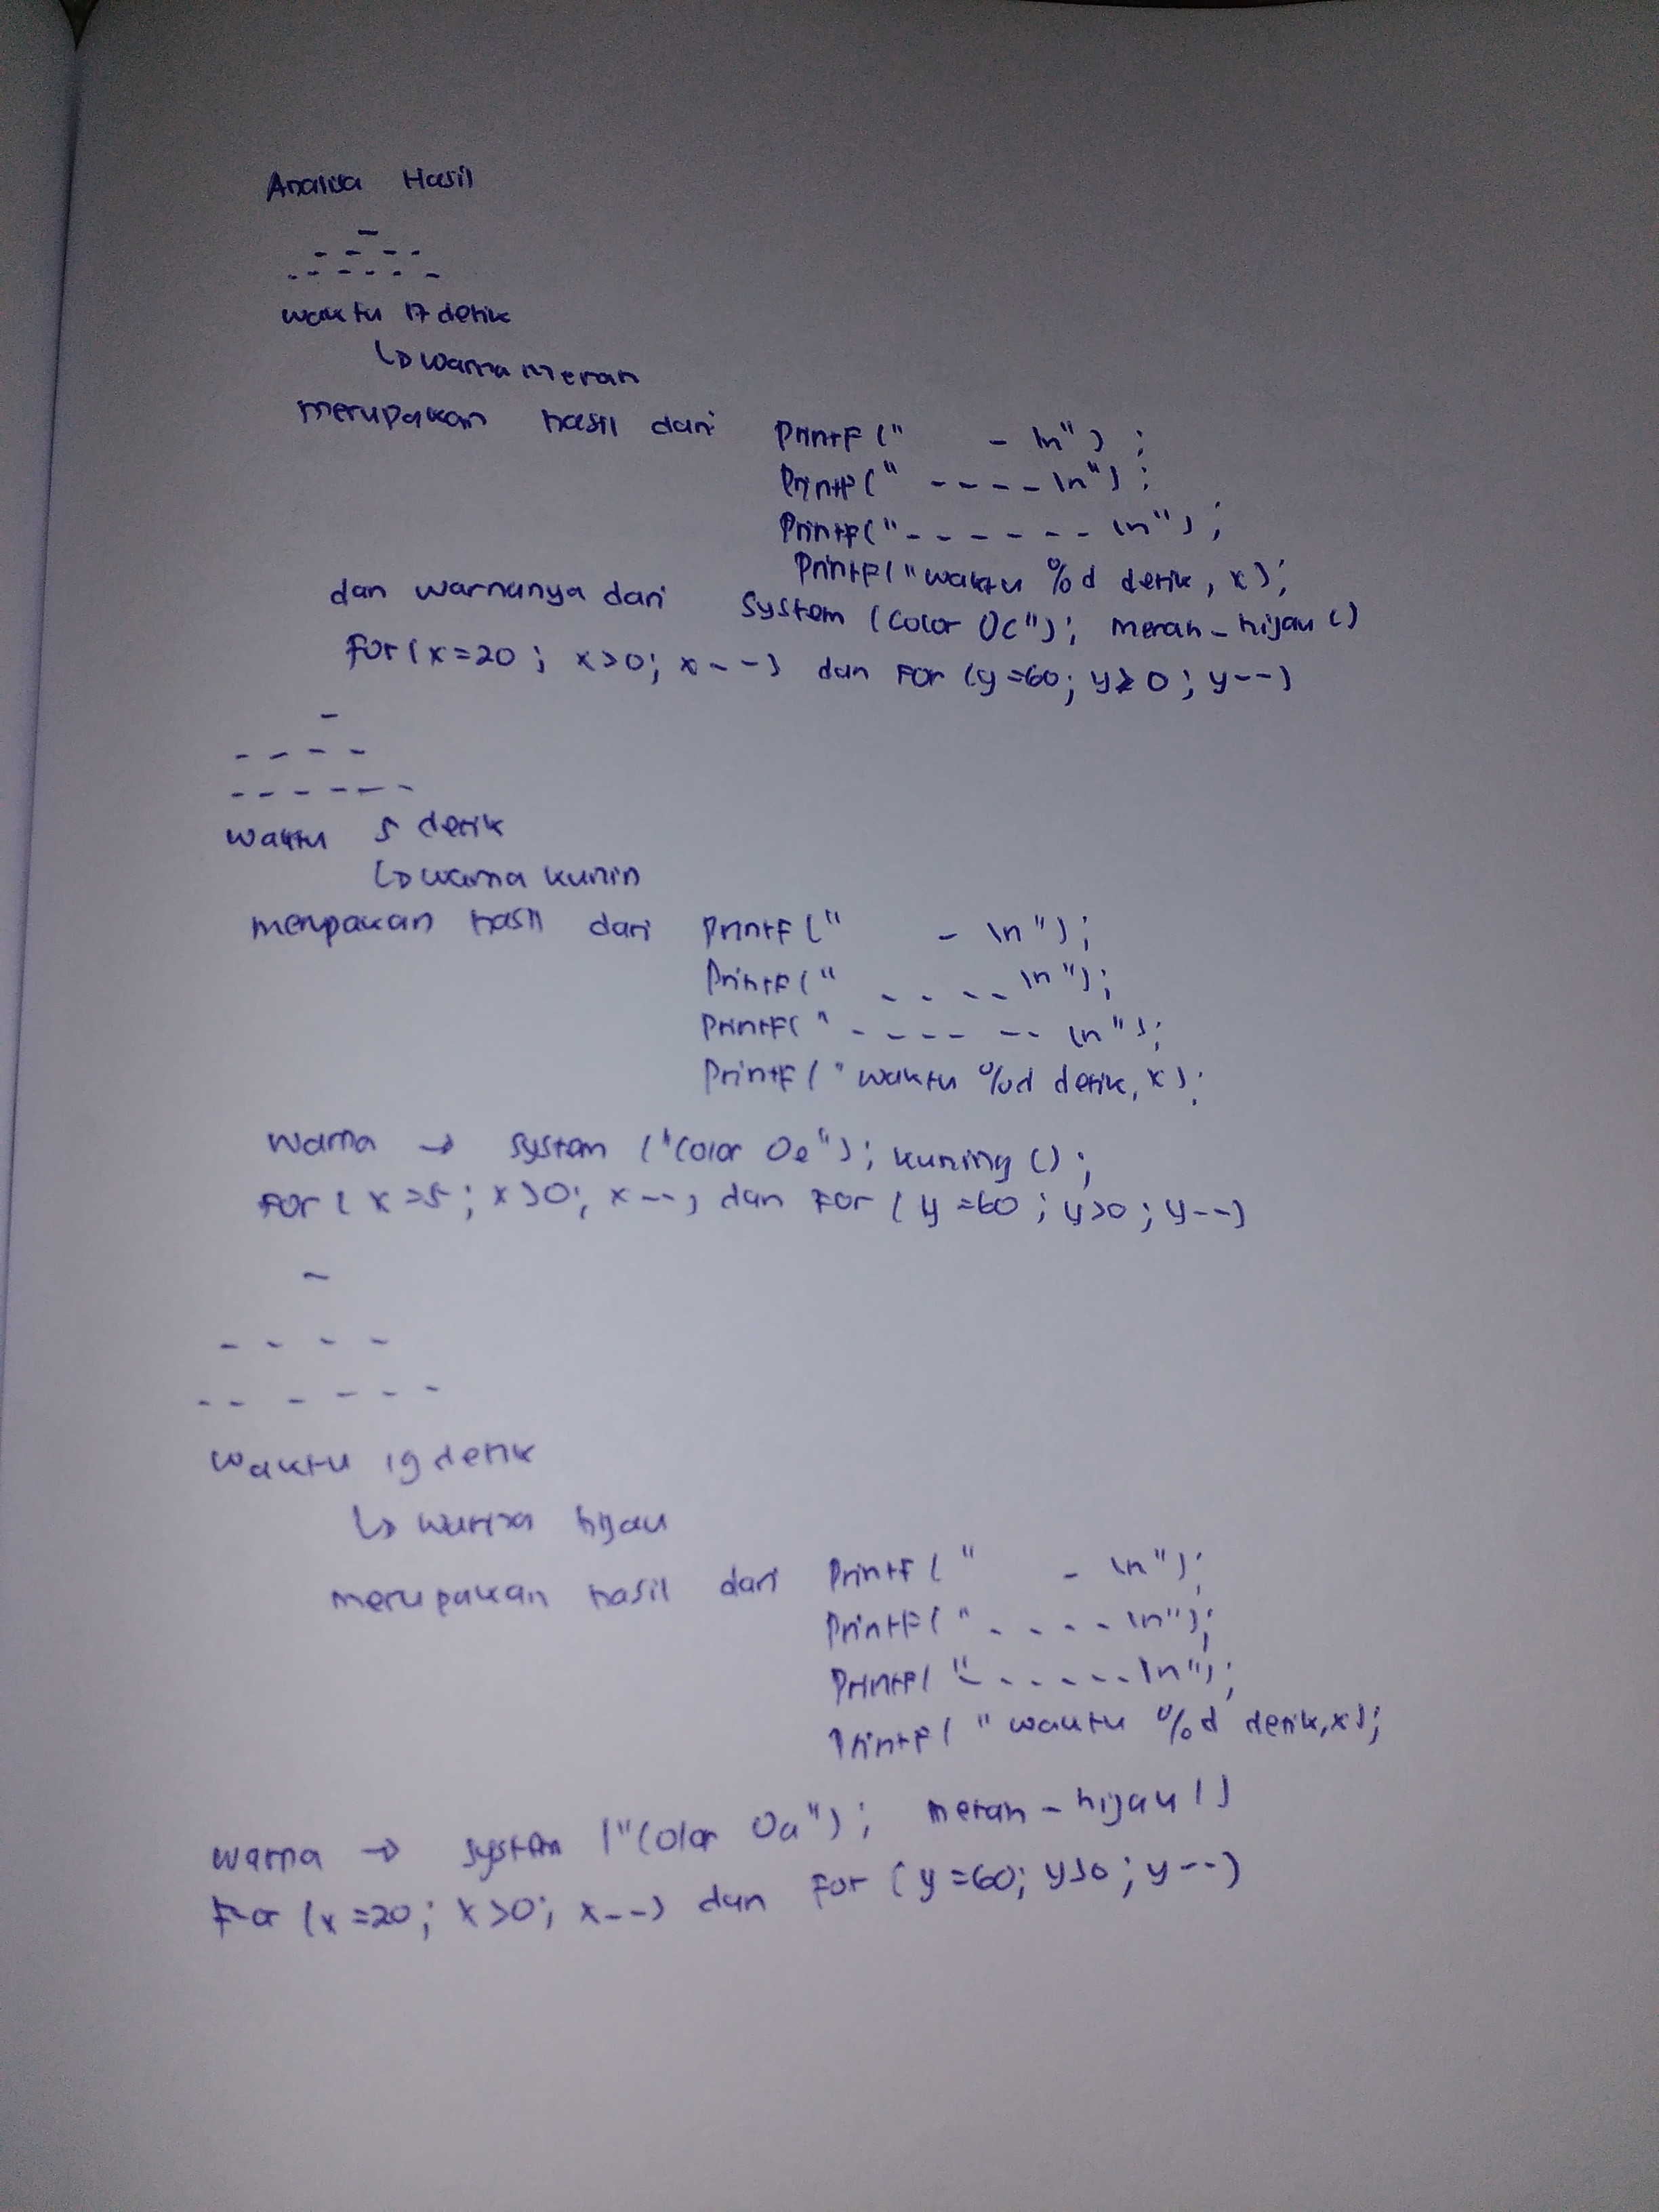 Analisa Hasil
-
- - - -
- - - - - -
waktu 17 detik
↳ warna merah
merupakan hasil dari printf (" - \n") ;
printf (" - - - - \n") ;
printf (" - - - - - - \n") ;
printf ("waktu %d detik, x) ;
dan warnanya dari system (color 0c") ; merah - hijau ()
for (x=20 ; x>0; x--) dan for (y=60; y≥0 ; y--)
-
- - - -
- - - - - -
waktu 5 detik
↳ warna kunin
merupakan hasil dari printf (" - \n") ;
printf (" - - - - \n") ;
printf (" - - - - - - \n") ;
printf (" waktu %d detik, x) ;
warna → system ("color 0e") ; kuning () ;
for (x=5 ; x>0; x--) dan for (y=60 ; y>0 ; y--)
-
- - - -
- - - - - -
waktu 19 detik
↳ warna hijau
merupakan hasil dari printf (" - \n") ;
printf (" - - - - \n") ;
printf (" - - - - - - \n") ;
printf (" waktu %d detik, x) ;
warna → system ("color 0a") ; merah - hijau ()
for (x=20 ; x>0; x--) dan for (y=60; y>0 ; y--)